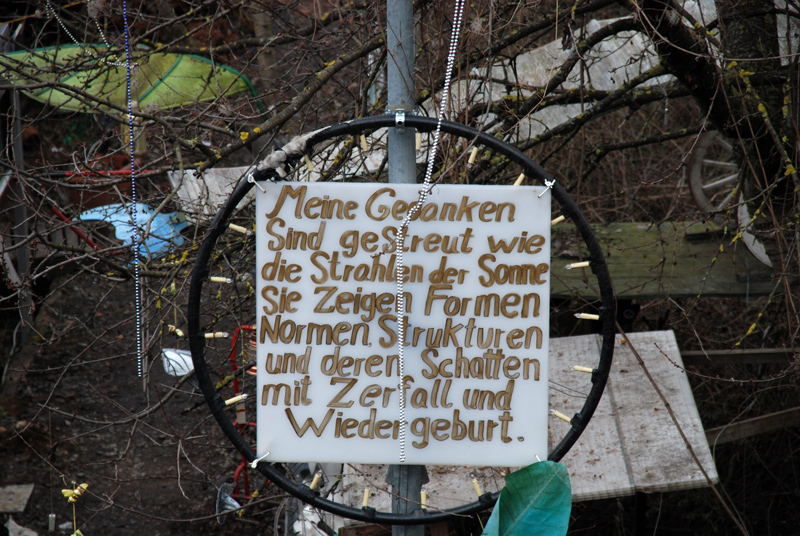 Meine Gedanken
Sind gestreut wie
die Strahlen der Sonne
Sie Zeigen Formen
Normen, Strukturen
und deren Schatten
mit Zerfall und
Wiedergeburt.